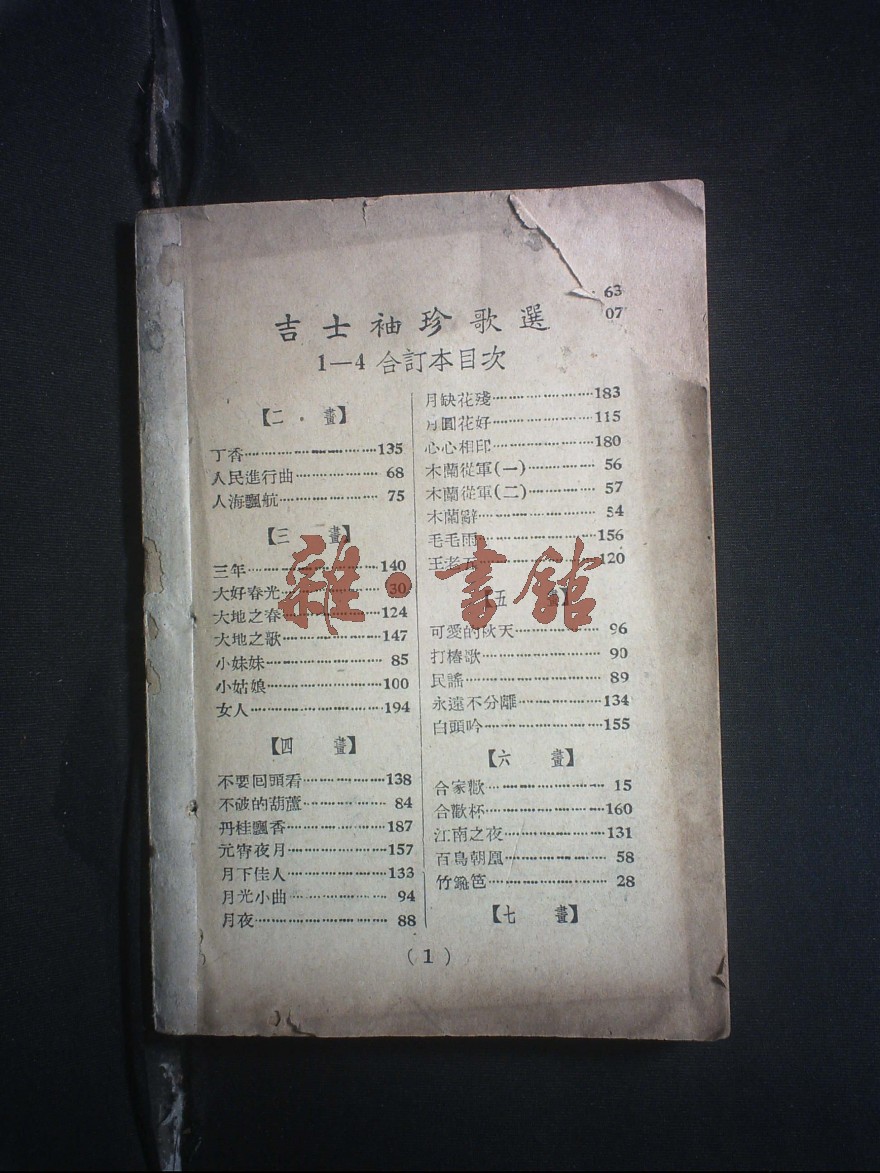 63
07
吉士袖珍歌選
1—4 合訂本目次
【二 畫】
丁香……135
人民進行曲……68
人海飄航……75
【三 畫】
三年……140
大好春光……30
大地之春……124
大地之歌……147
小妹妹……85
小姑娘……100
女人……194
【四 畫】
不要回頭看……138
不破的葫蘆……84
丹桂飄香……187
元宵夜月……157
月下佳人……133
月光小曲……94
月夜……88
月缺花殘……183
月圓花好……115
心心相印……180
木蘭從軍(一)……56
木蘭從軍(二)……57
木蘭辭……54
毛毛雨……156
王老五……120
【五 畫】
可愛的秋天……96
打樁歌……90
民謠……89
永遠不分離……134
白頭吟……155
【六 畫】
合家歡……15
合歡杯……160
江南之夜……131
百鳥朝凰……58
竹……28
【七 畫】
(1)
雜·書館